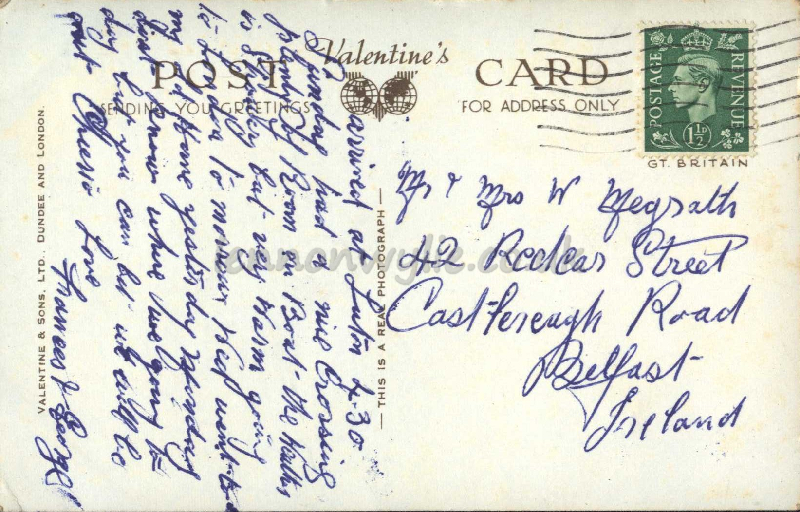 Valentine's
POST CARD
SENDING YOU GREETINGS
FOR ADDRESS ONLY
POSTAGE REVENUE
1½D
GT. BRITAIN
VALENTINE & SONS, LTD., DUNDEE AND LONDON.
— THIS IS A REAL PHOTOGRAPH —
arrived at Luton 4-30
Sunday had a nice crossing
plenty of Room on Boat the
is but very warm going
to London to
my at home yesterday Monday
dont know where we going to
day but you can bet we will be
Cheerio Love
Frances & George
Mr & Mrs W Megrath
42 Redcar Street
Castlereagh Road
Belfast
Ireland
lennonwylie.co.uk